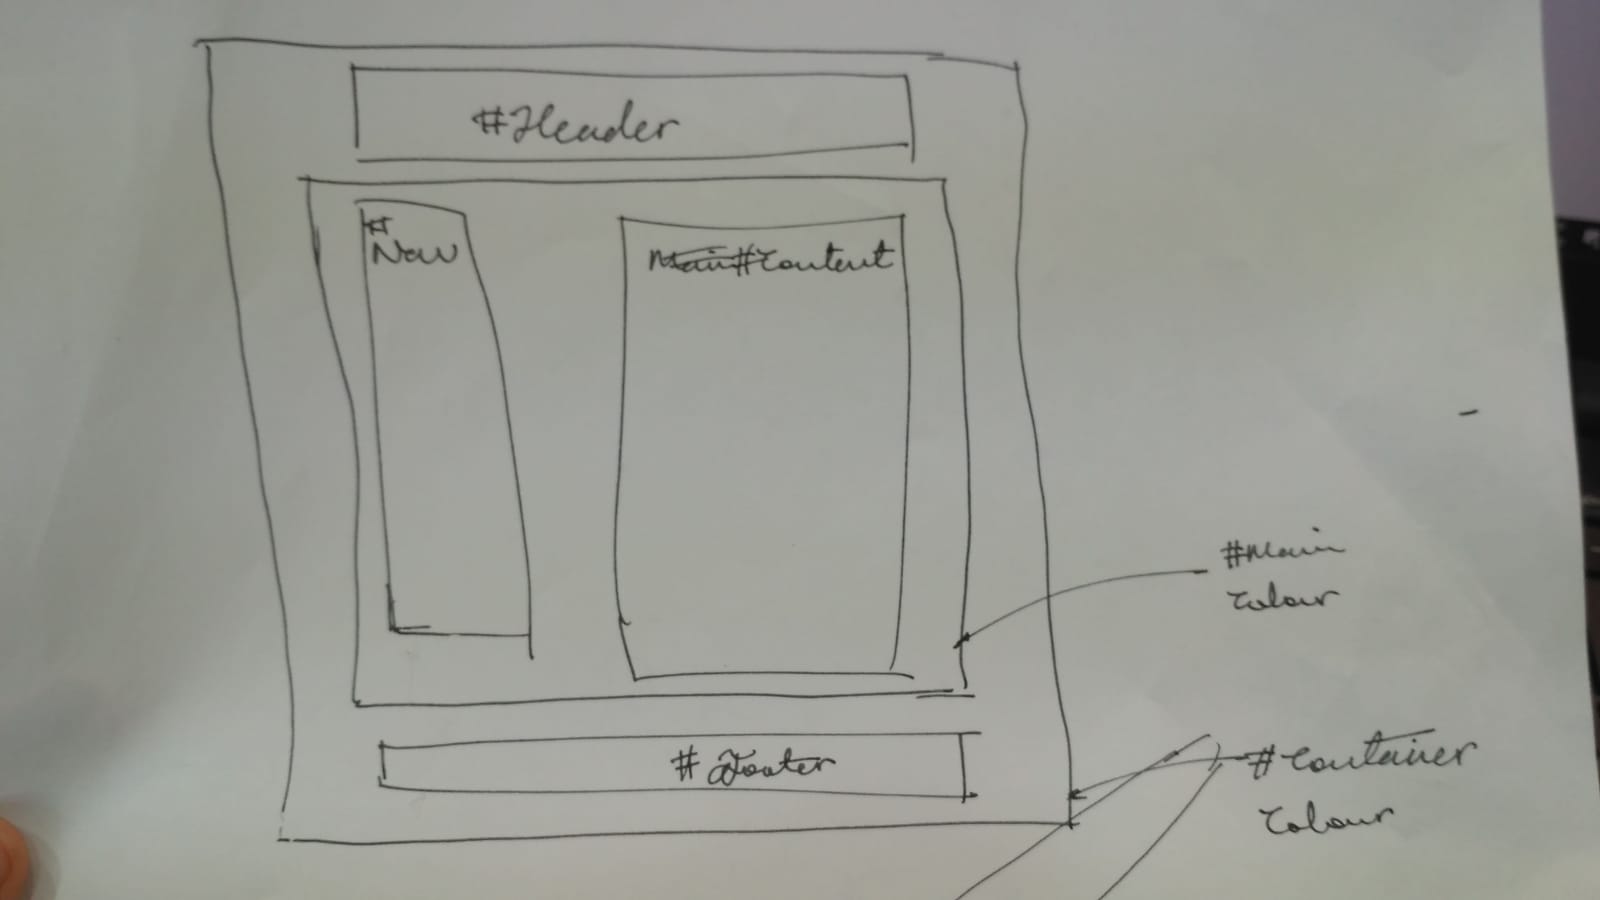 #Header
#
Nav
Main #Content
#Main
Colour
# Footer
#Container
Colour